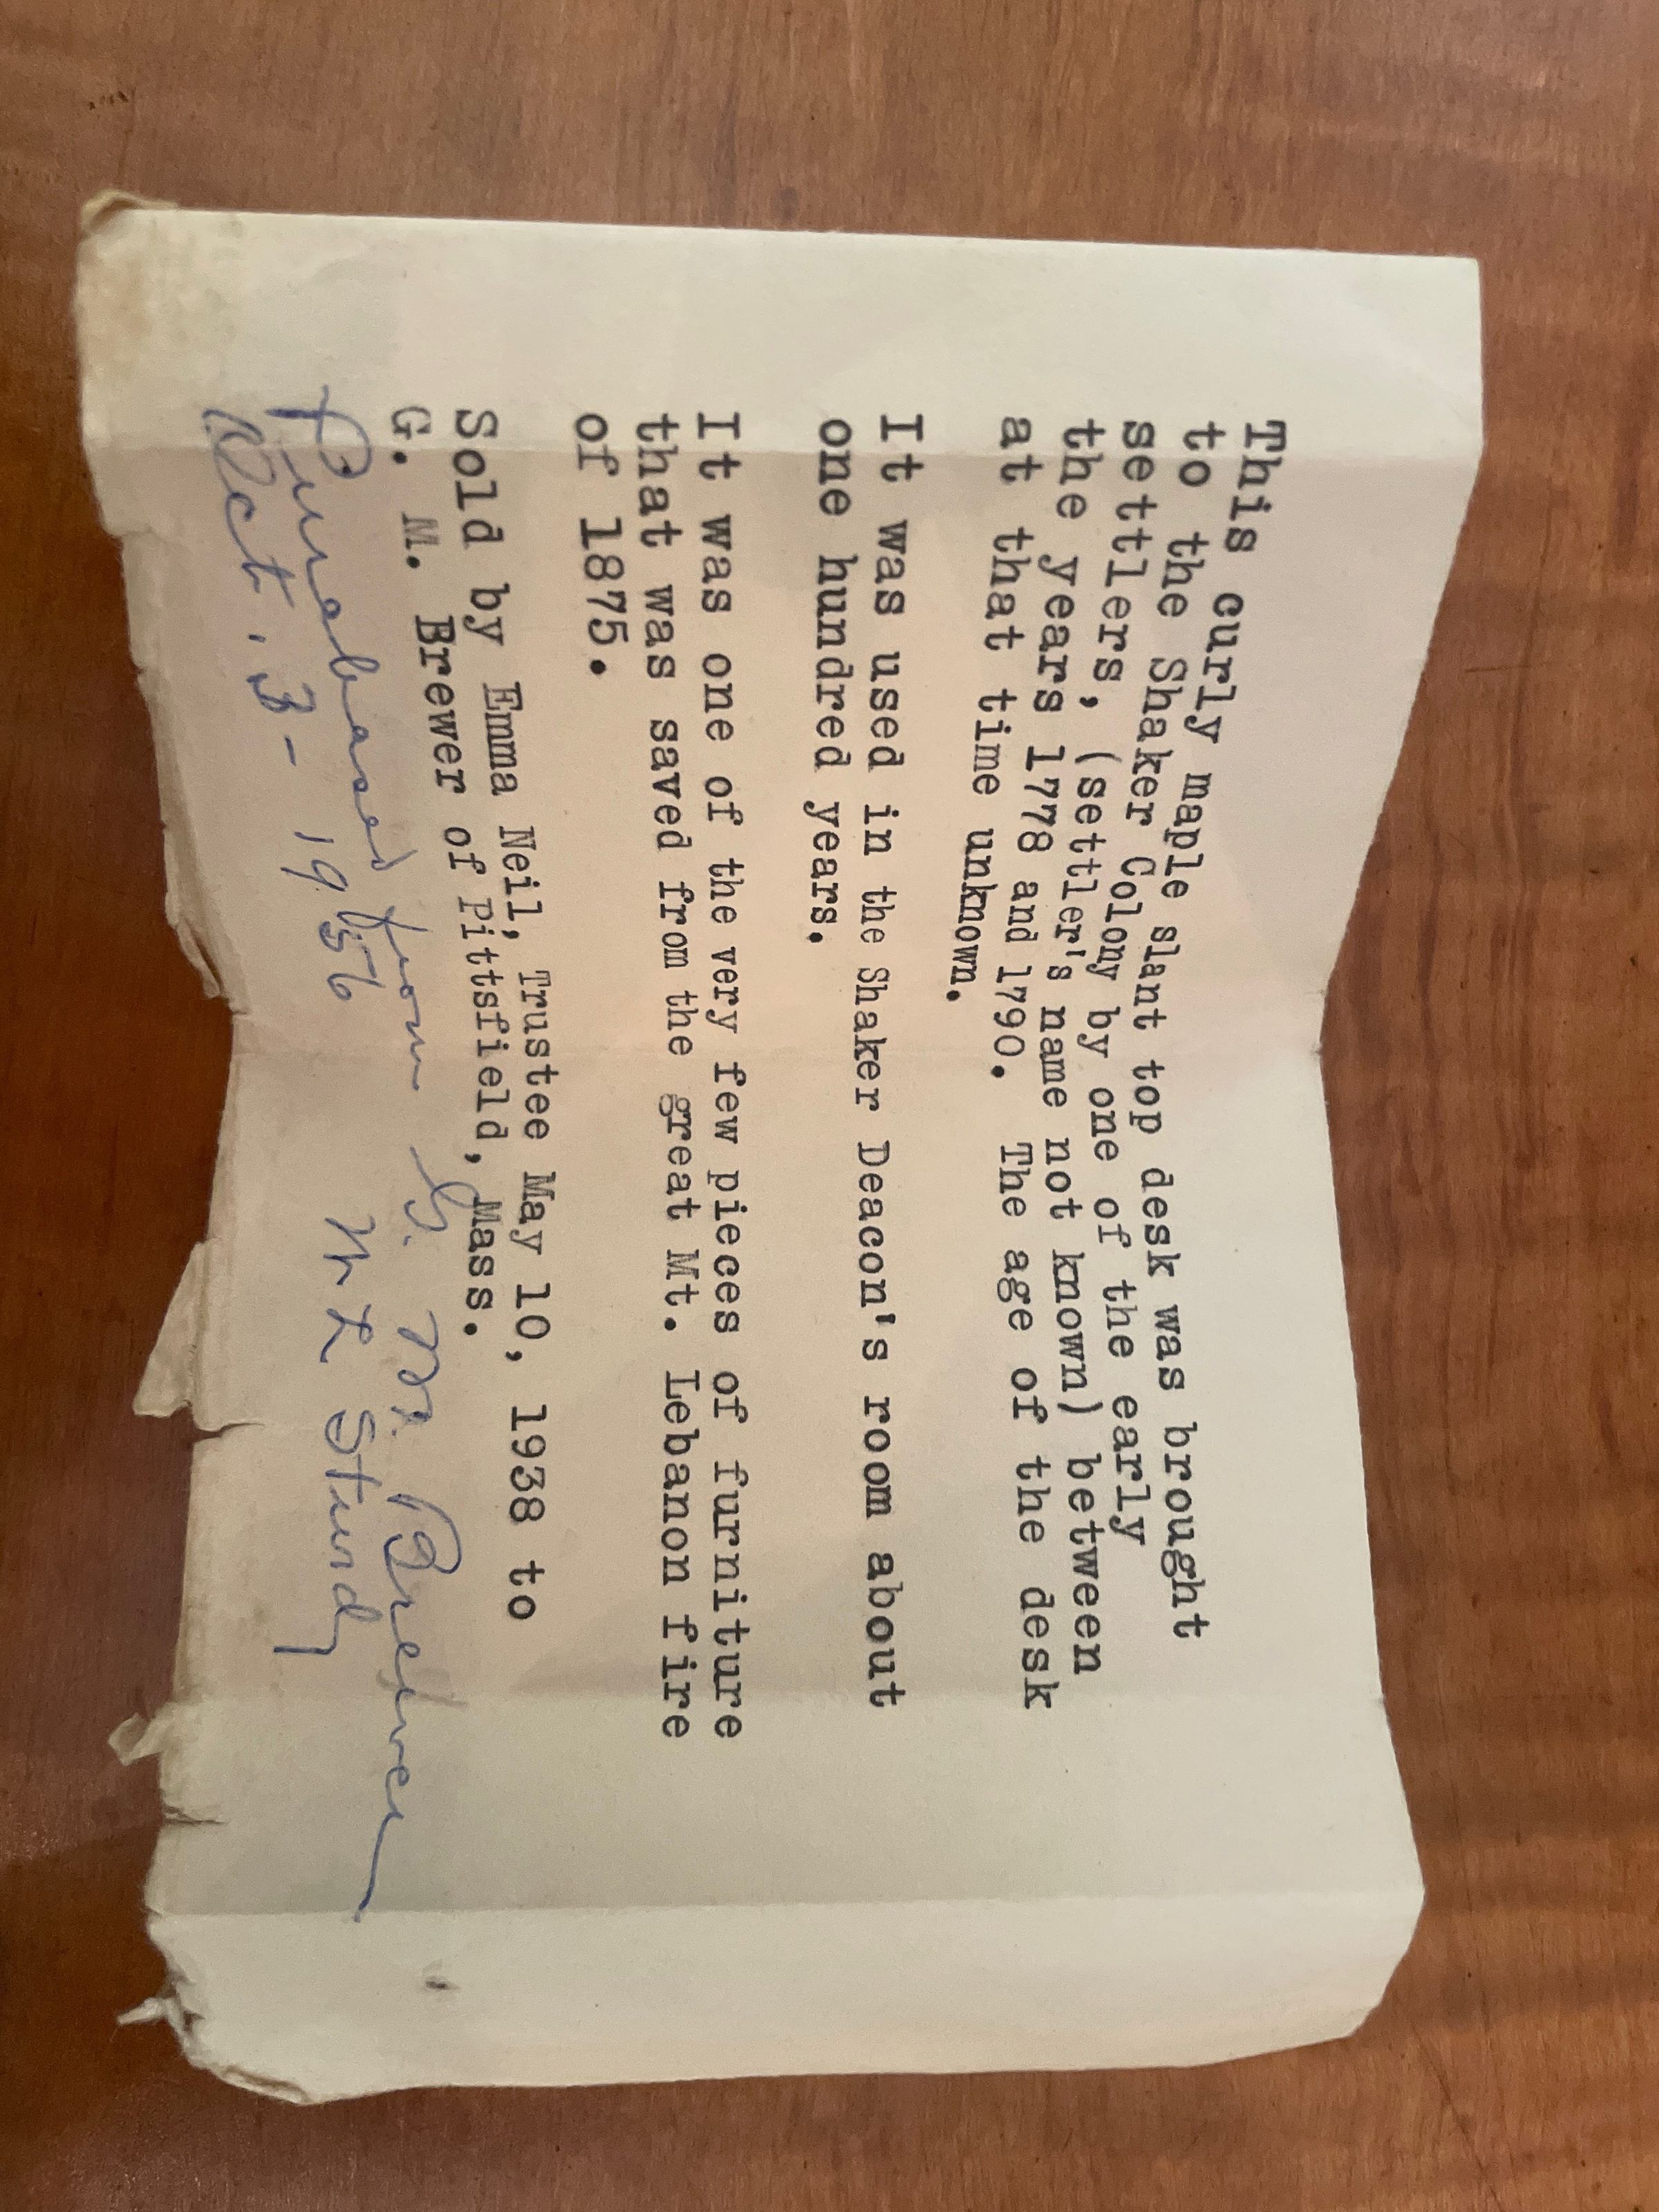 This curly maple slant top desk was brought
to the Shaker Colony by one of the early
settlers, (settler's name not known) between
the years 1778 and 1790. The age of the desk
at that time unknown.
It was used in the Shaker Deacon's room about
one hundred years.
It was one of the very few pieces of furniture
that was saved from the great Mt. Lebanon fire
of 1875.
Sold by Emma Neil, Trustee May 10, 1938 to
G. M. Brewer of Pittsfield, Mass.
Purchased from G. M. Brewer
Oct. 3 - 1956